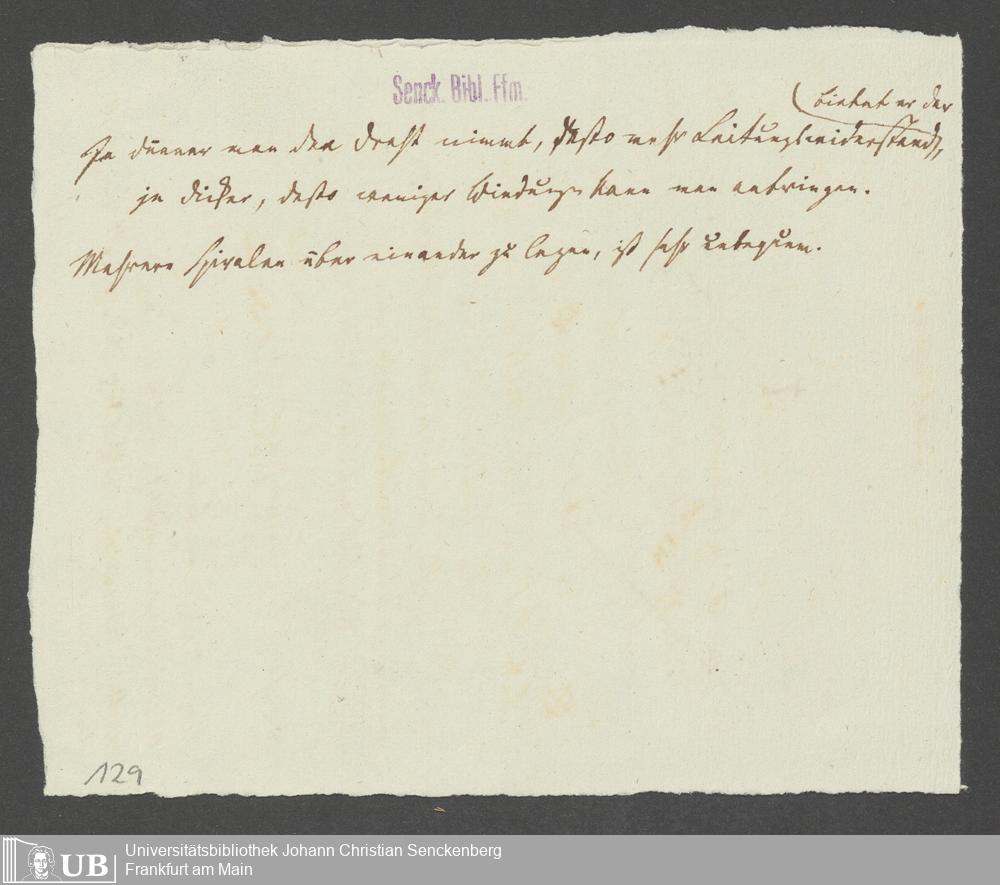 Senck. Bibl. Ffm.
bietet er der
Je dünner man den Draht nimmt, desto mehr Leitungswiderstand,
je dicker, desto weniger Windungen kann man anbringen.
Mehrere Spiralen über einander zu legen, ist sehr unbequem.
129
UB
Universitätsbibliothek Johann Christian Senckenberg
Frankfurt am Main